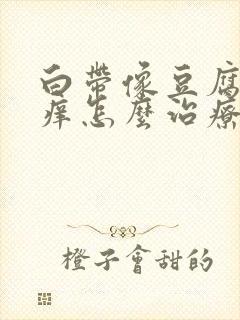 白帶像豆腐
痒怎麼治療
橙子會甜的